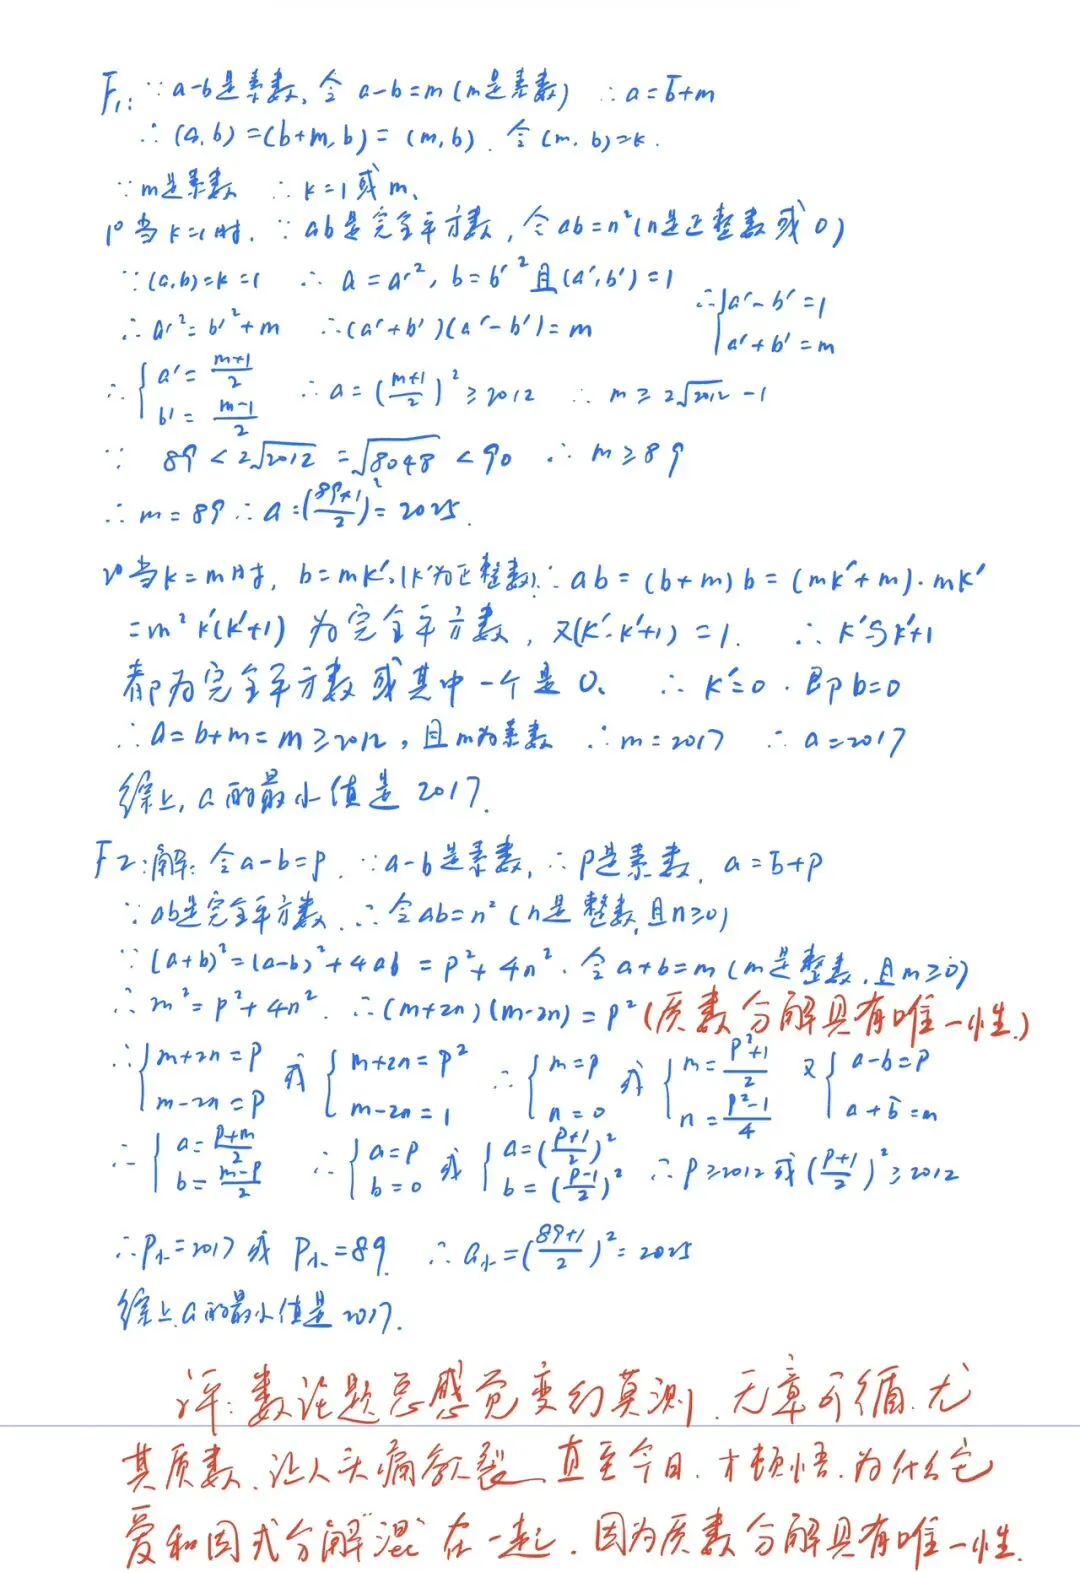 F1: ∵a-b是素数,令 a-b=m(m是素数) ∴a=b+m
∴(a,b)=(b+m,b)=(m,b).令(m,b)=k.
∵m是素数 ∴k=1或m.
1°当k=1时,∵ab是完全平方数,令ab=n²(n是正整数或0)
∵(a,b)=k=1 ∴a=a'²,b=b'²且(a',b')=1
∴a'²=b'²+m ∴(a'+b')(a'-b')=m ∴{a'-b'=1 a'+b'=m
∴{a'=(m+1)/2 b'=(m-1)/2 ∴a=((m+1)/2)²≥2012 ∴m≥2√2012-1
∵ 89<2√2012=√8048<90 ∴m≥89
∴m=89∴a=((89+1)/2)²=2025.
2°当k=m时,b=mk',(k'为正整数)∴ab=(b+m)b=(mk'+m)·mk'
=m²k'(k'+1)为完全平方数,又(k',k'+1)=1. ∴k'与k'+1
都为完全平方数或其中一个是0. ∴k'=0.即b=0
∴a=b+m=m≥2012,且m为素数 ∴m=2017 ∴a=2017
综上,a的最小值是2017.
F2:解:令a-b=p.∵a-b是素数,∴p是素数. a=b+p
∵ab是完全平方数.∴令ab=n²(n是整数,且n≥0)
∵(a+b)²=(a-b)²+4ab=p²+4n².令a+b=m(m是整数,且m≥0)
∴m²=p²+4n².∴(m+2n)(m-2n)=p²(质数分解具有唯一性.)
∴{m+2n=p m-2n=p 或 {m+2n=p² m-2n=1 ∴{m=p n=0 或 {m=(p²+1)/2 n=(p²-1)/4 又{a-b=p a+b=m
∴{a=(p+m)/2 b=(m-p)/2 ∴{a=p b=0 或 {a=((p+1)/2)² b=((p-1)/2)² ∴p≥2012或((p+1)/2)²≥2012
∴p小=2017或p小=89. ∴a小=((89+1)/2)²=2025
综上,a的最小值是2017.
评:数论题总感觉变幻莫测,无章可循.尤
其质数,让人头痛欲裂,直至今日,才顿悟.为什么它
爱和因式分解“混”在一起.因为质数分解具有唯一性.